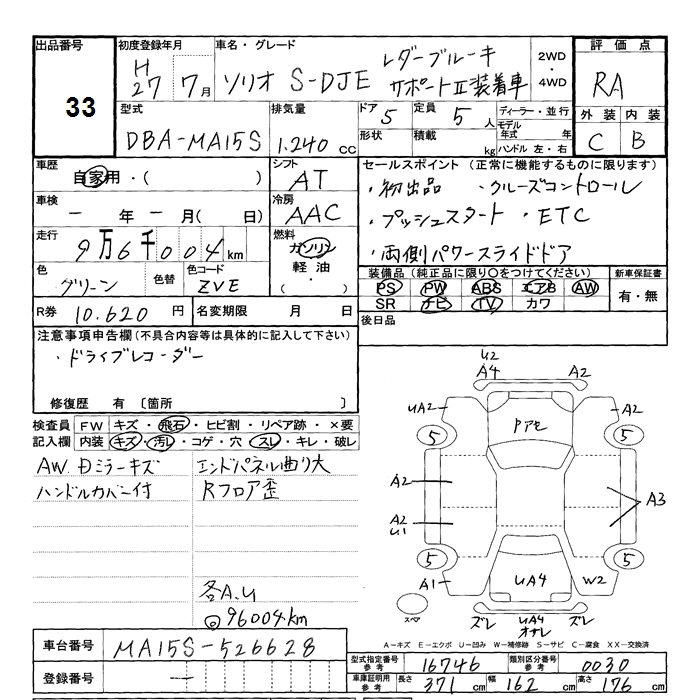 出品番号
33
初度登録年月
H 27 7月
車名・グレード
ソリオ S-DJE レダーブルーキ サポートⅡ装着車
2WD
・
4WD
評価点
RA
外装 内装
C B
型式
DBA-MA15S
排気量
1.240 cc
ドア 5
定員 5人
形状
積載 kg
ディーラー・並行
モデル年式 年
ハンドル 左・右
車歴
自家用・( )
シフト
AT
車検
ー年ー月(日)
冷房
AAC
走行
9万6千004km
燃料
ガソリン
軽油
・( )
色
グリーン
色替
色コード
ZVE
R券 10.620円
名変期限 月 日
セールスポイント (正常に機能するものに限ります)
・初出品 ・クルーズコントロール
・プッシュスタート ・ETC
・両側パワースライドドア
装備品(純正品に限り○をつけてください)
PS PW ABS エアB AW
SR ナビ TV カワ
新車保証書
有・無
後日品
注意事項申告欄(不具合内容等は具体的に記入して下さい)
・ドライブレコーダー
修復歴 有 〔箇所 〕
検査員記入欄
FW キズ・飛石・ヒビ割・リペア跡・×要
内装 キズ・汚レ・コゲ・穴・スレ・キレ・破レ
AW.Dミラーキズ
ハンドルカバー付
エンドパネル曲り大
Rフロア歪
各A.U
◎96004km
U2
A4 A2
UA2 A2
Pアセ
5 5
A2
A2
U1
A3
5 5
A1 UA4 W2
スペア
ズレ UA4 ズレ
オサレ
A-キズ E-エクボ U-凹み W-補修跡 S-サビ C-腐食 XX-交換済
車台番号 MA15S-526628
登録番号 ー
型式指定番号参考 16746
類別区分番号参考 0030
車庫証明用参考 長さ 371cm 幅 162cm 高さ 176cm